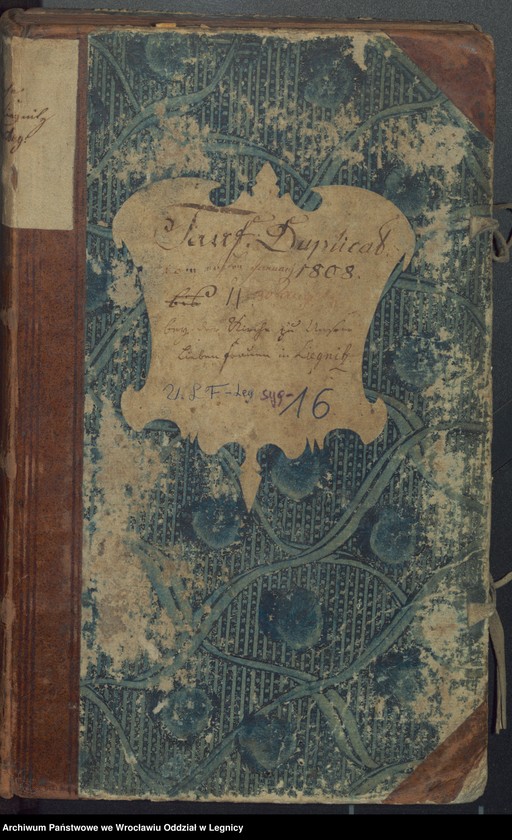 Tauf-Duplicat.
vom ersten Januar 1808.
bis
bey der Kirche zu Unser
Lieben Frauen in Liegnitz
U. L. F - Leg syg-16
Archiwum Państwowe we Wrocławiu Oddział w Legnicy